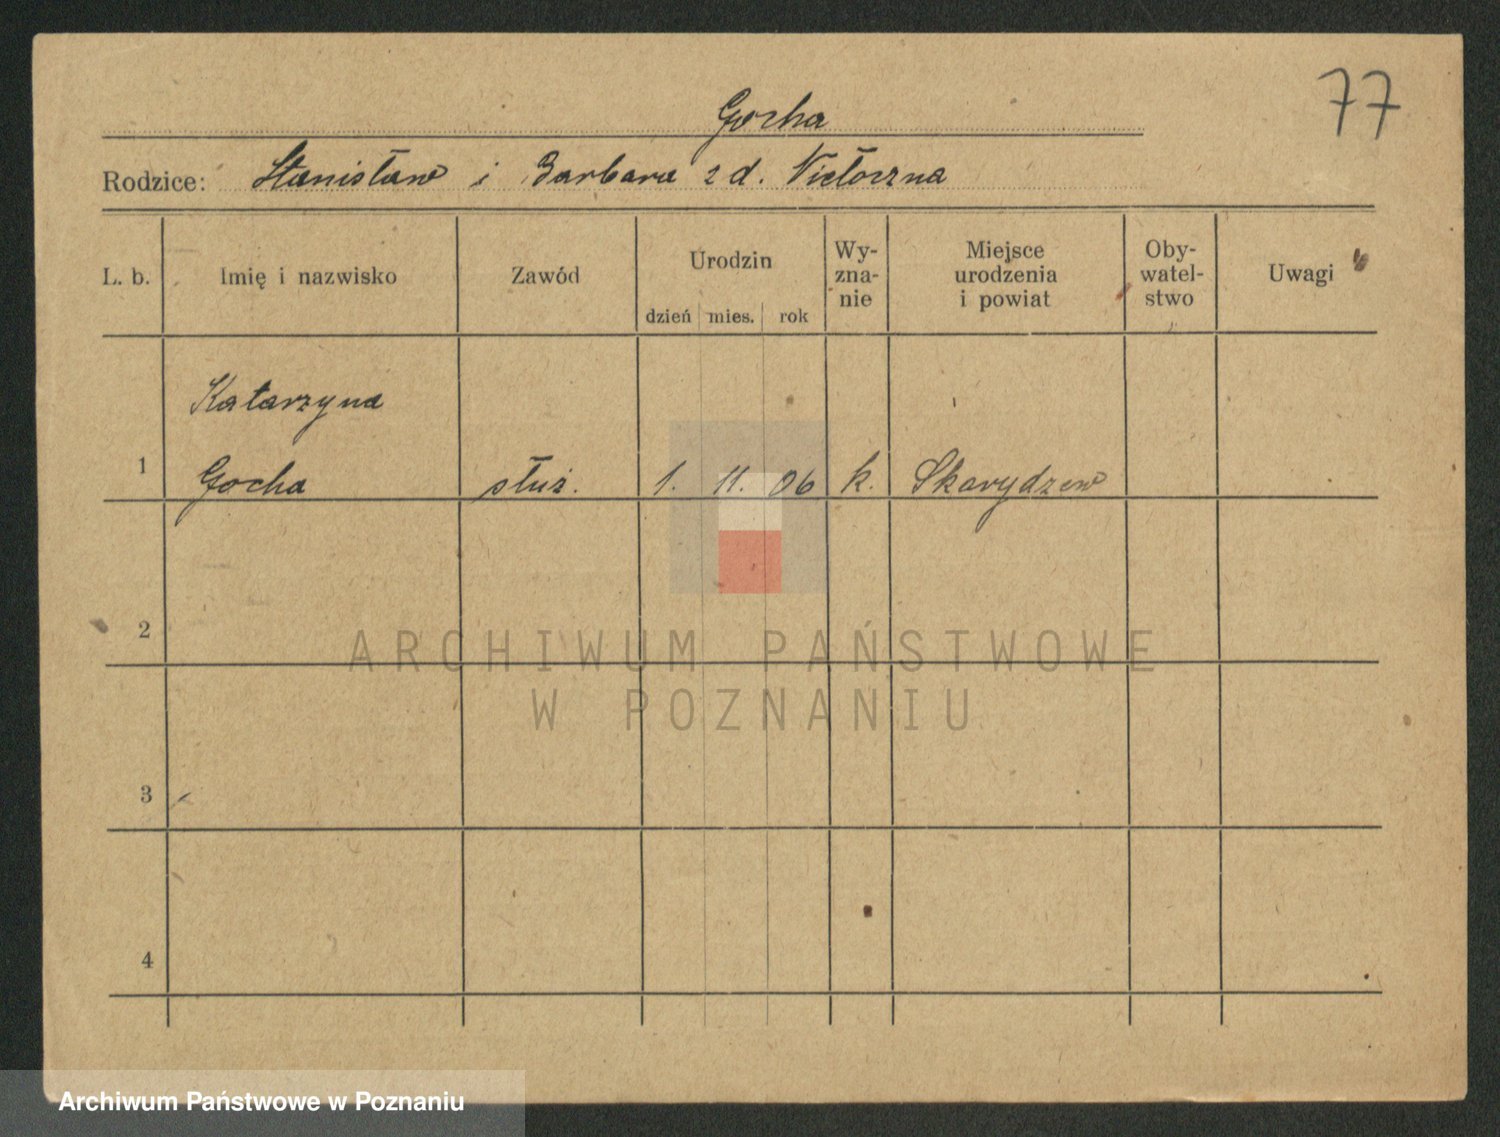 77
Gocha
Rodzice: Stanisław i Barbara z d.
L. b. Imię i nazwisko Zawód Urodzin dzień mies. rok Wy-zna-nie Miejsce urodzenia i powiat Oby-watel-stwo Uwagi
Katarzyna
1 Gocha służ. 1. 11. 06 k. Skarydzew
2
3
4
ARCHIWUM PAŃSTWOWE
W POZNANIU
Archiwum Państwowe w Poznaniu